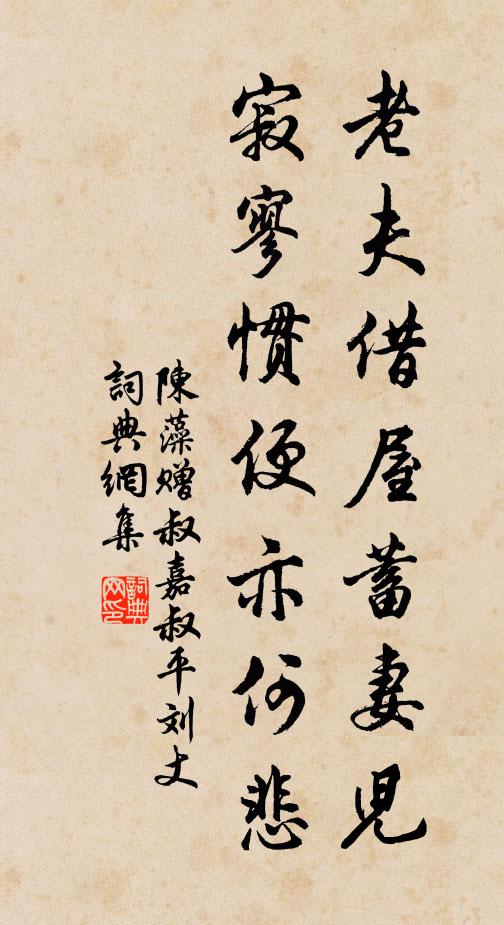 老夫借屋蓄妻児
寂寥慣便亦何悲
陳藻贈叔嘉叔平刘丈
詞典網集
詞典網印